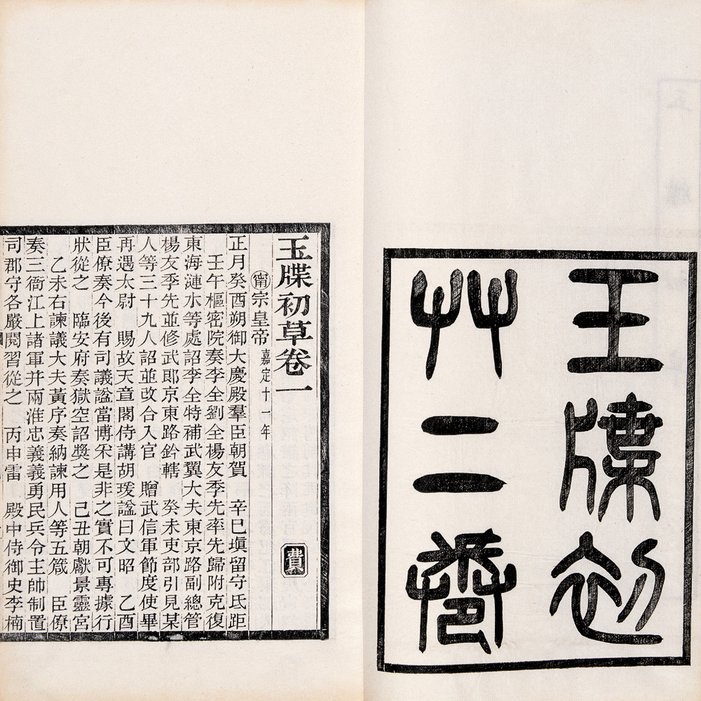 玉牒初
艸二卷
玉牒初草卷一 費
甯宗皇帝 嘉定十一年
正月癸酉朔御大慶殿羣臣朝賀 辛巳塡留守氐距
壬午樞密院奏李全劉全楊友季先率先歸附克復
東海漣水等處詔李全特補武翼大夫東京路副總管
楊友季先並修武郎京東路鈐轄 癸未吏部引見某
人等三十九人詔並改合入官 贈武信軍節度使畢
再遇太尉 賜故天章閣侍講胡瑗謚曰文昭 乙酉
臣僚奏今後有司議謚當博采是非之實不可專據行
狀從之 臨安府奏獄空詔獎之 己丑朝獻景靈宮
乙未右諫議大夫黃序奏納諫用人等五箴 臣僚
奏三衙江上諸軍并兩淮忠義義勇民兵令主帥制置
司郡守各嚴閱習從之 丙申雷 殿中侍御史李楠